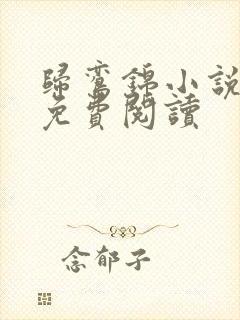 歸鸞錦小說
免費閱讀
念郁子